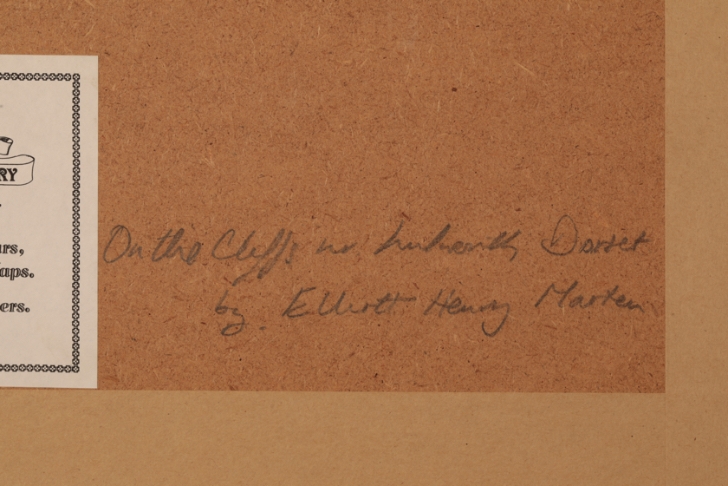 RY
urs,
aps.
ers.
On the Cliffs nr. Lulworth, Dorset
by. Elliott Henry Marten